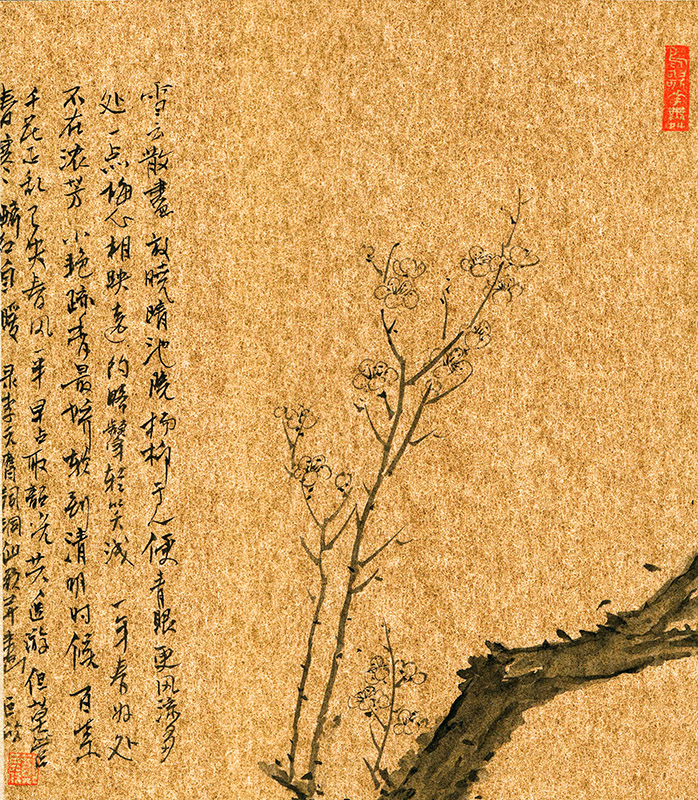 雪云散盡放曉晴池院楊柳于人便青眼更风流多
处一点梅心相映遠约略顰轻笑浅 一年春好处
不在浓芳小艳疏香最娇软到清明时候百紫
千花正乱已失春风一半早占取韶光共追游但莫管
春寒醉红自暖 录李元膺词洞仙歌并画